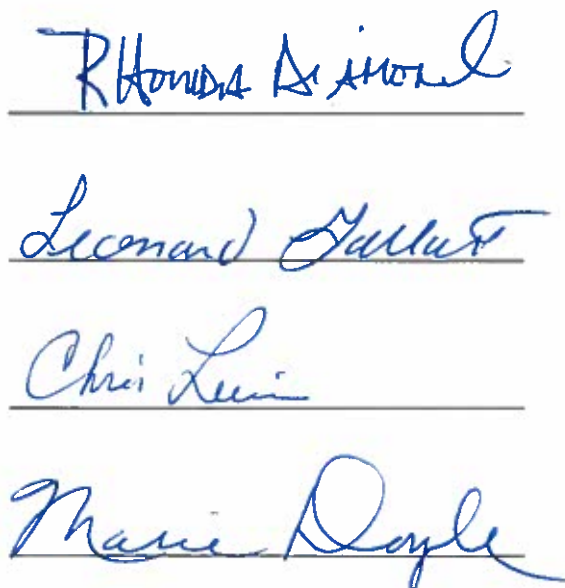 Rhonda Diamond
Leonard Gallant
Chris Levin
Marie Doyle